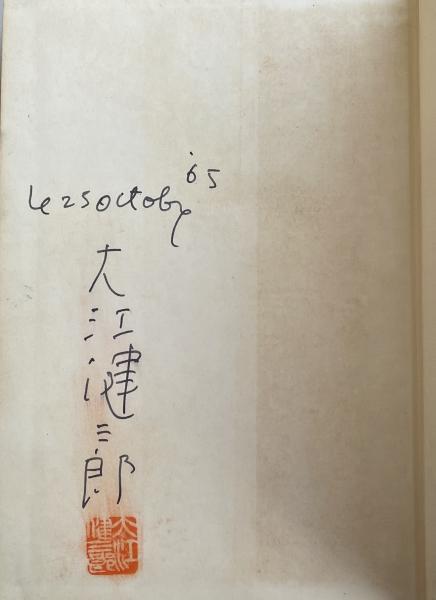 le 25 october '65
大江健三郎
大江健三郎